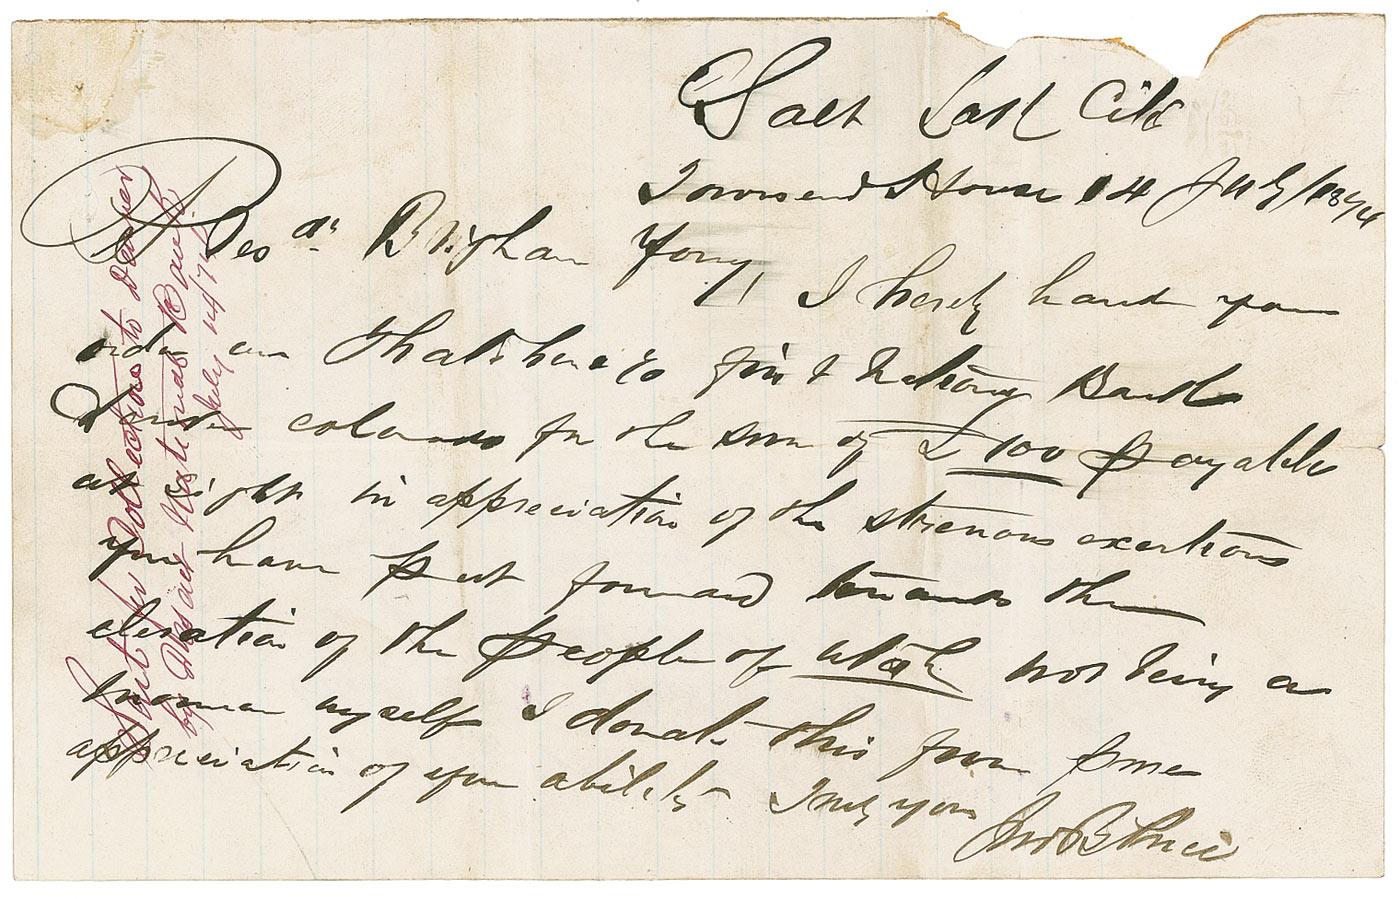 Salt Lake City
Townsend House 14 July / 1874
Presdt Brigham Yong, I herely hand you
order on Thatcher & Co first National Bank
Denver colorado for the sum of £ 100 payable
at sight in appreciation of the strenous exertions
you have put forward towards the
elevation of the people of Utah not being a
mormon myself I donate this from pure
appreciation of your ability Truly yours
Jno B Price
Sent for Collection to Denver
by Deseret National Bank
July 14/74